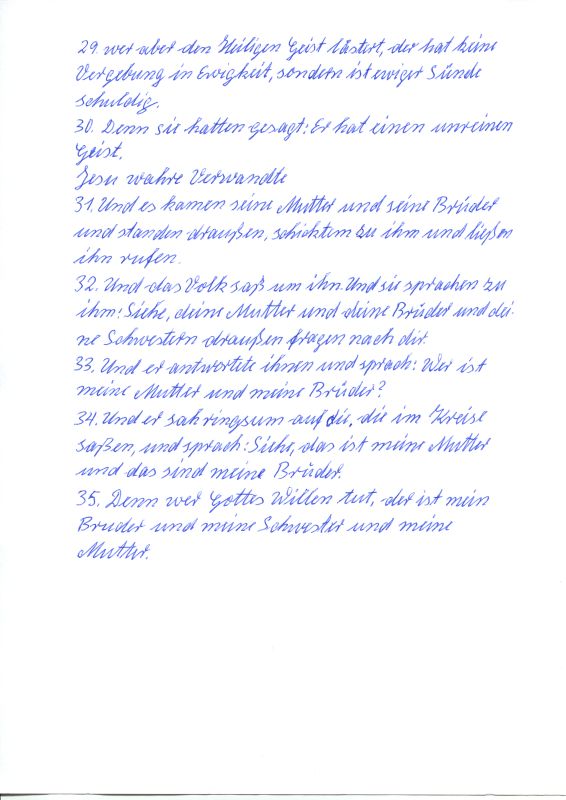 29. wer aber den Heiligen Geist lästert, der hat keine
Vergebung in Ewigkeit, sondern ist ewiger Sünde
schuldig.
30. Denn sie hatten gesagt: Er hat einen unreinen
Geist.
Jesu wahre Verwandte
31. Und es kamen seine Mutter und seine Brüder
und standen draußen, schicktem zu ihm und ließen
ihn rufen.
32. Und das Volk saß um ihn. Und sie sprachen zu
ihm: Siehe, deine Mutter und deine Brüder und dei-
ne Schwestern draußen fragen nach dir.
33. Und er antwortete ihnen und sprach: Wer ist
meine Mutter und meine Brüder?
34. Und er sah ringsum auf die, die im Kreise
saßen, und sprach: Siehe, das ist meine Mutter
und das sind meine Brüder.
35. Denn wer Gottes Willen tut, der ist mein
Bruder und meine Schwester und meine
Mutter.